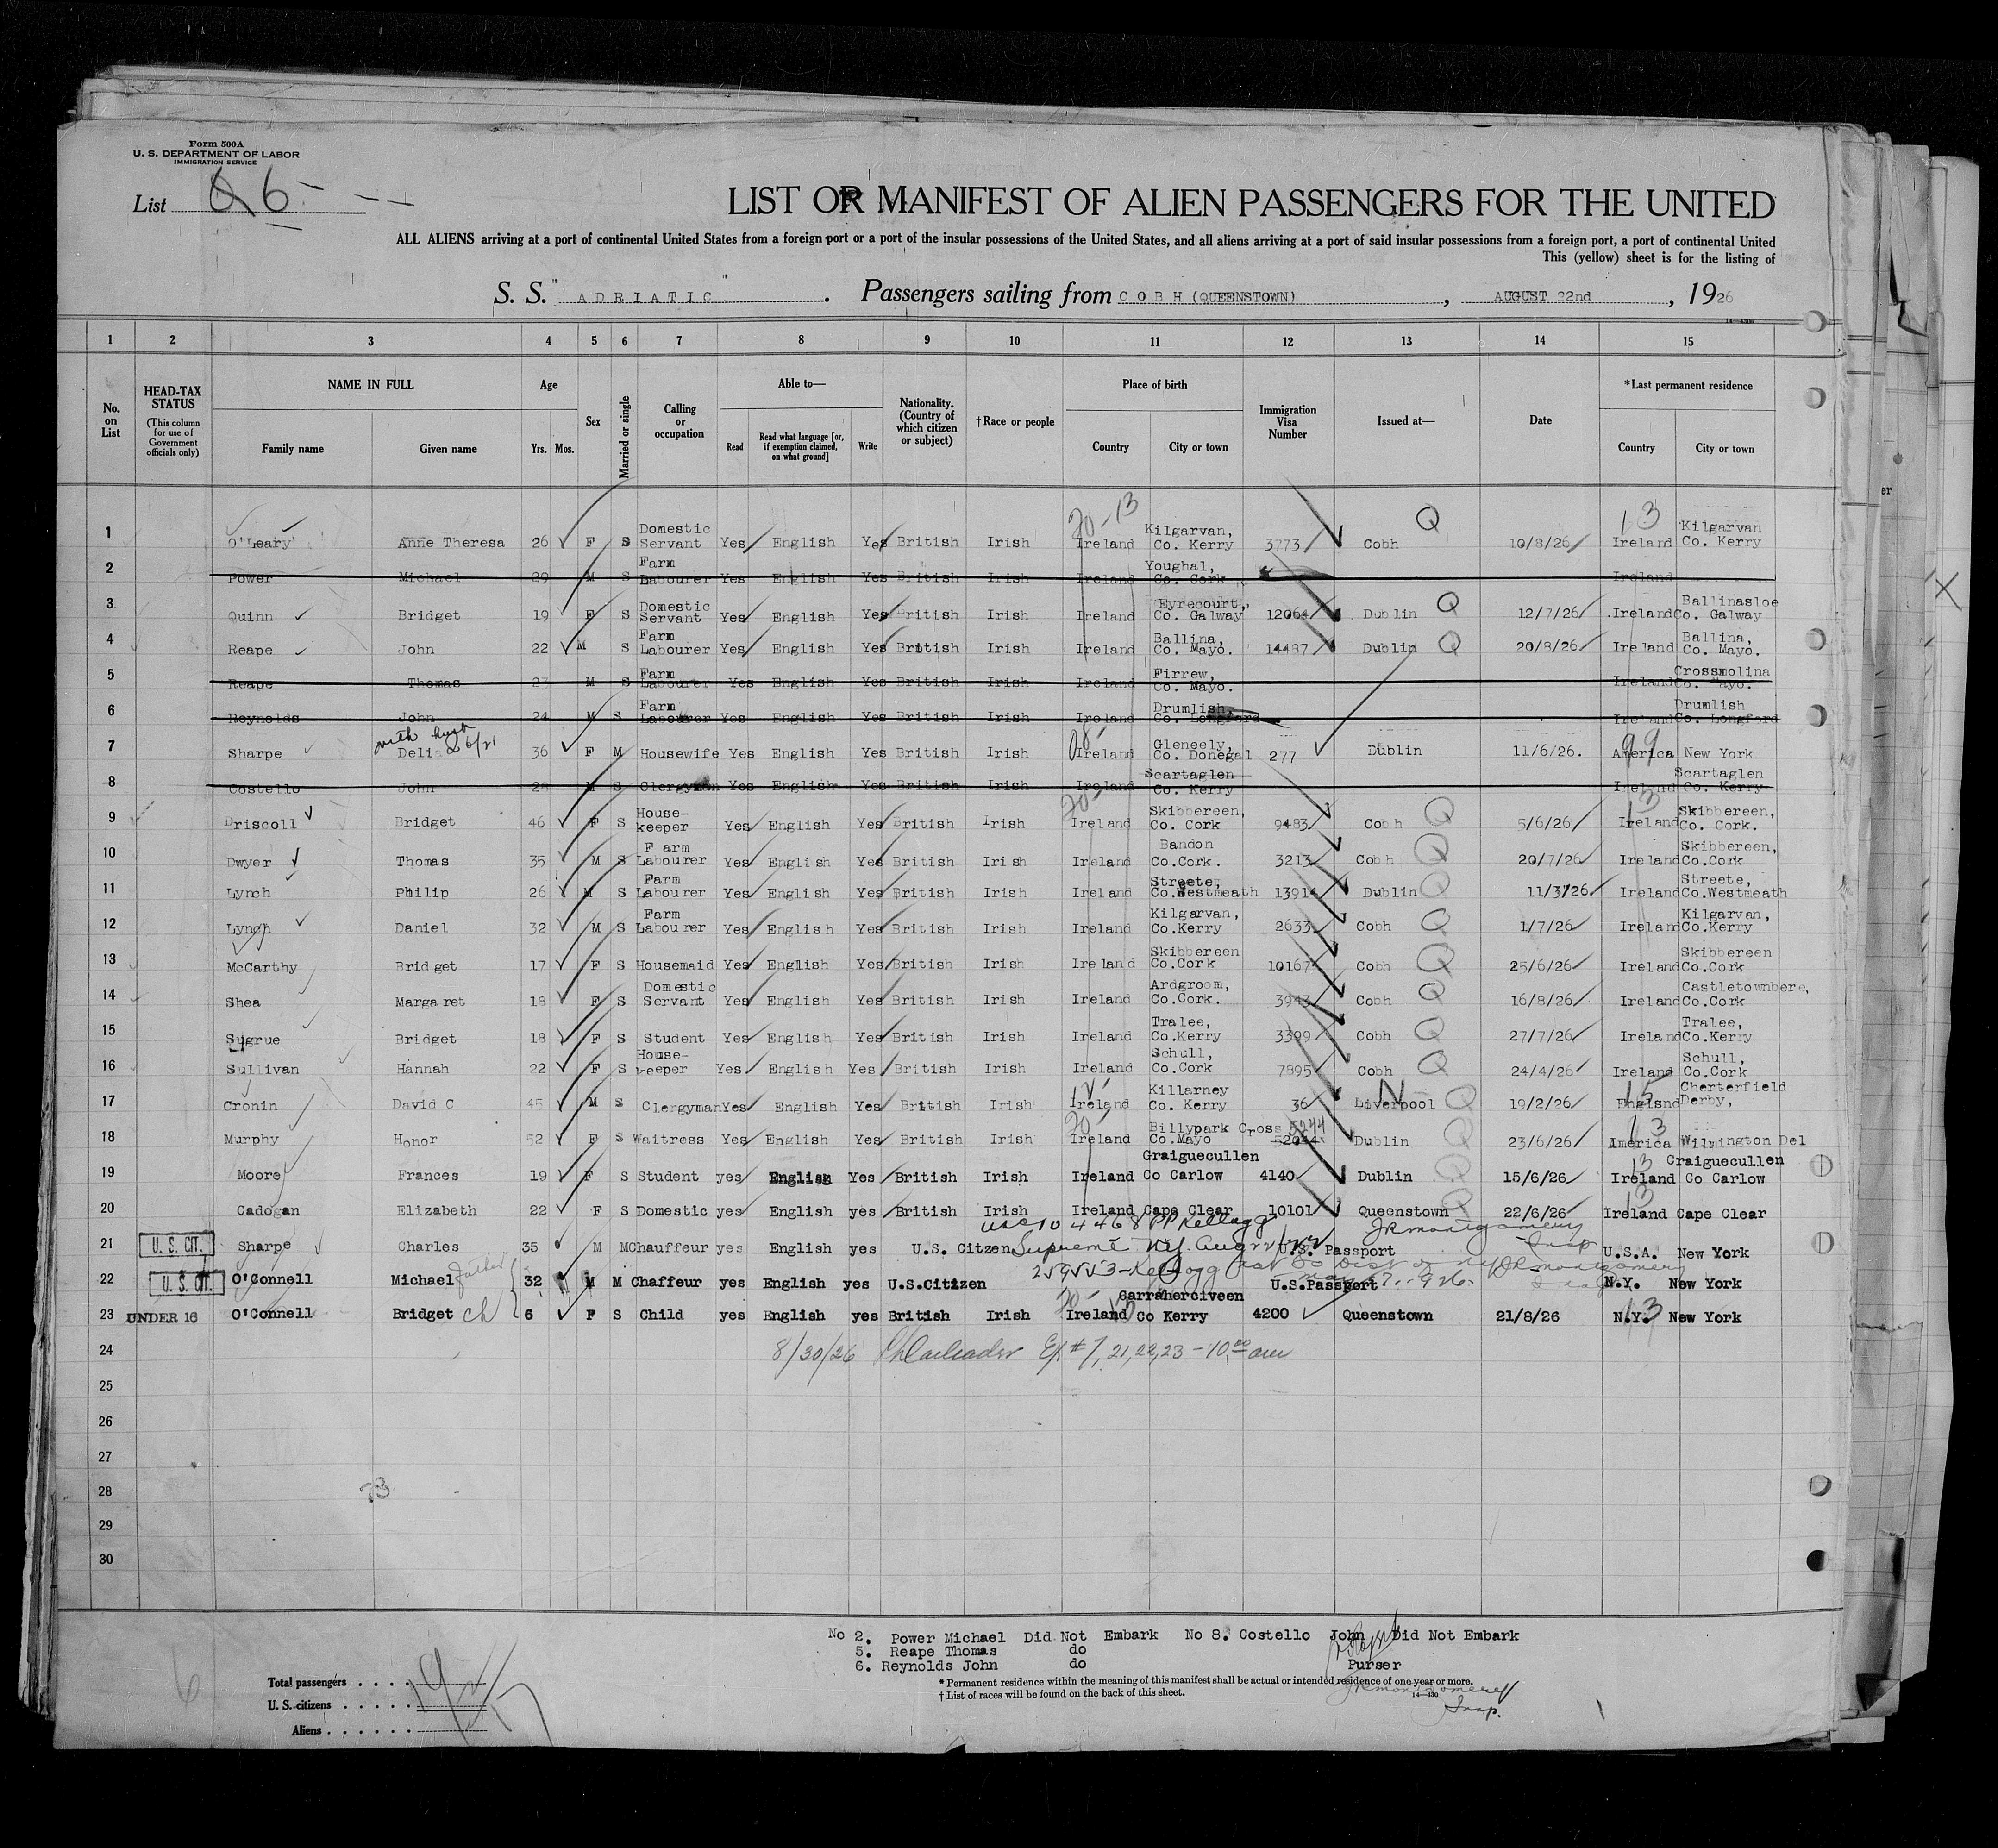 Form 500A
U. S. DEPARTMENT OF LABOR
IMMIGRATION SERVICE
List 6
LIST OR MANIFEST OF ALIEN PASSENGERS FOR THE UNITED
ALL ALIENS arriving at a port of continental United States from a foreign port or a port of the insular possessions of the United States, and all aliens arriving at a port of said insular possessions from a foreign port, a port of continental United
This (yellow) sheet is for the listing of
S. S. "ADRIATIC". Passengers sailing from COBH (QUEENSTOWN), AUGUST 22nd, 1926
1 2 3 4 5 6 7 8 9 10 11 12 13 14 15
No. on List
HEAD-TAX STATUS (This column for use of Government officials only)
NAME IN FULL Family name Given name
Age Yrs. Mos.
Sex
Married or single
Calling or occupation
Able to— Read Read what language [or, if exemption claimed, on what ground] Write
Nationality. (Country of which citizen or subject)
†Race or people
Place of birth Country City or town
Immigration Visa Number
Issued at—
Date
*Last permanent residence Country City or town
20-13 Q 13
1 O'Leary Anne Theresa 26 F S Domestic Servant Yes English Yes British Irish Ireland Kilgarvan, Co. Kerry 3773 Cobh 10/8/26 Ireland Kilgarvan Co. Kerry
2 Power Michael 29 M S Farm Labourer Yes English Yes British Irish Ireland Youghal, Co. Cork Ireland
3 Quinn Bridget 19 F S Domestic Servant Yes English Yes British Irish Ireland Eyrecourt, Co. Galway 12064 Dublin Q 12/7/26 Ireland Ballinasloe Co. Galway
4 Reape John 22 M S Farm Labourer Yes English Yes British Irish Ireland Ballina, Co. Mayo. 14487 Dublin Q 20/8/26 Ireland Ballina, Co. Mayo.
5 Reape Thomas 23 M S Farm Labourer Yes English Yes British Irish Ireland Firrew, Co. Mayo. Ireland Crossmolina Co. Mayo.
6 Reynolds John 24 M S Farm Labourer Yes English Yes British Irish Ireland Drumlish Co. Longford Ireland Drumlish Co. Longford
with husb 6/21
7 Sharpe Delia 36 F M Housewife Yes English Yes British Irish Ireland Gleneely, Co. Donegal 277 Dublin 11/6/26. America 99 New York
8 Costello John 28 M S Clergyman Yes English Yes British Irish Ireland Scartaglen Co. Kerry Ireland Scartaglen Co. Kerry
9 Driscoll Bridget 46 F S House-keeper Yes English Yes British Irish 20- Ireland Skibbereen, Co. Cork 9483 Cobh Q 5/6/26 13 Ireland Skibbereen, Co. Cork.
10 Dwyer Thomas 35 M S Farm Labourer Yes English Yes British Irish Ireland Bandon Co.Cork. 3213 Cobh Q 20/7/26 Ireland Skibbereen, Co.Cork
11 Lynch Philip 26 M S Farm Labourer Yes English Yes British Irish Ireland Streete, Co.Westmeath 13914 Dublin Q 11/3/26 Ireland Streete, Co.Westmeath
12 Lynch Daniel 32 M S Farm Labourer Yes English Yes British Irish Ireland Kilgarvan, Co.Kerry 2633 Cobh Q 1/7/26 Ireland Kilgarvan, Co.Kerry
13 McCarthy Bridget 17 F S Housemaid Yes English Yes British Irish Ireland Skibbereen Co.Cork 10167 Cobh Q 25/6/26 Ireland Skibbereen Co.Cork
14 Shea Margaret 18 F S Domestic Servant Yes English Yes British Irish Ireland Ardgroom, Co.Cork. 3943 Cobh Q 16/8/26 Ireland Castletownbere, Co.Cork
15 Sugrue Bridget 18 F S Student Yes English Yes British Irish Ireland Tralee, Co.Kerry 3399 Cobh Q 27/7/26 Ireland Tralee, Co.Kerry
16 Sullivan Hannah 22 F S House-keeper Yes English Yes British Irish Ireland Schull, Co.Cork 7895 Cobh Q 24/4/26 Ireland Schull, Co.Cork
17 Cronin David C 45 M S Clergyman Yes English Yes British Irish Ireland Killarney Co. Kerry 36 N Liverpool Q 19/2/26 15 England Cherterfield Derby,
18 Murphy Honor 52 F S Waitress Yes English Yes British Irish 20- Ireland Billypark Cross Co.Mayo 52044 5244 Dublin Q 23/6/26 13 America Wilmington Del
19 Moore Frances 19 F S Student yes English Yes British Irish Ireland Graiguecullen Co Carlow 4140 Dublin Q 15/6/26 13 Ireland Craiguecullen Co Carlow
20 Cadogan Elizabeth 22 F S Domestic yes English yes British Irish Ireland Cape Clear 10101 Queenstown Q 22/6/26 13 Ireland Cape Clear
4468 PP Kellogg JRMontgomery Insp
21 U. S. CIT. Sharpe Charles 35 M M Chauffeur yes English yes U.S. Citzen Supreme NY. Aug U.S. Passport U.S.A. New York
259553-Kellogg East So Dist of NY JRMontgomery
22 U. S. CIT. O'Connell Michael father 32 M M Chaffeur yes English yes U.S.Citizen U.S.Passport N.Y. New York
23 UNDER 16 O'Connell Bridget ch 6 F S Child yes English yes British Irish 20- Ireland Carraherciveen Co Kerry 4200 Queenstown 21/8/26 13 N.Y. New York
24 8/30/26 Ex # 7, 21, 22, 23 - 10 00 am
25
26
27
28
73
29
30
No 2. Power Michael Did Not Embark No 8. Costello John Did Not Embark
5. Reape Thomas do
6. Reynolds John do Purser
* Permanent residence within the meaning of this manifest shall be actual or intended residence of one year or more.
† List of races will be found on the back of this sheet. 14—430
JRMontgomery
Insp.
6
Total passengers . . . .
U. S. citizens . . . . .
Aliens . . . . . .
19